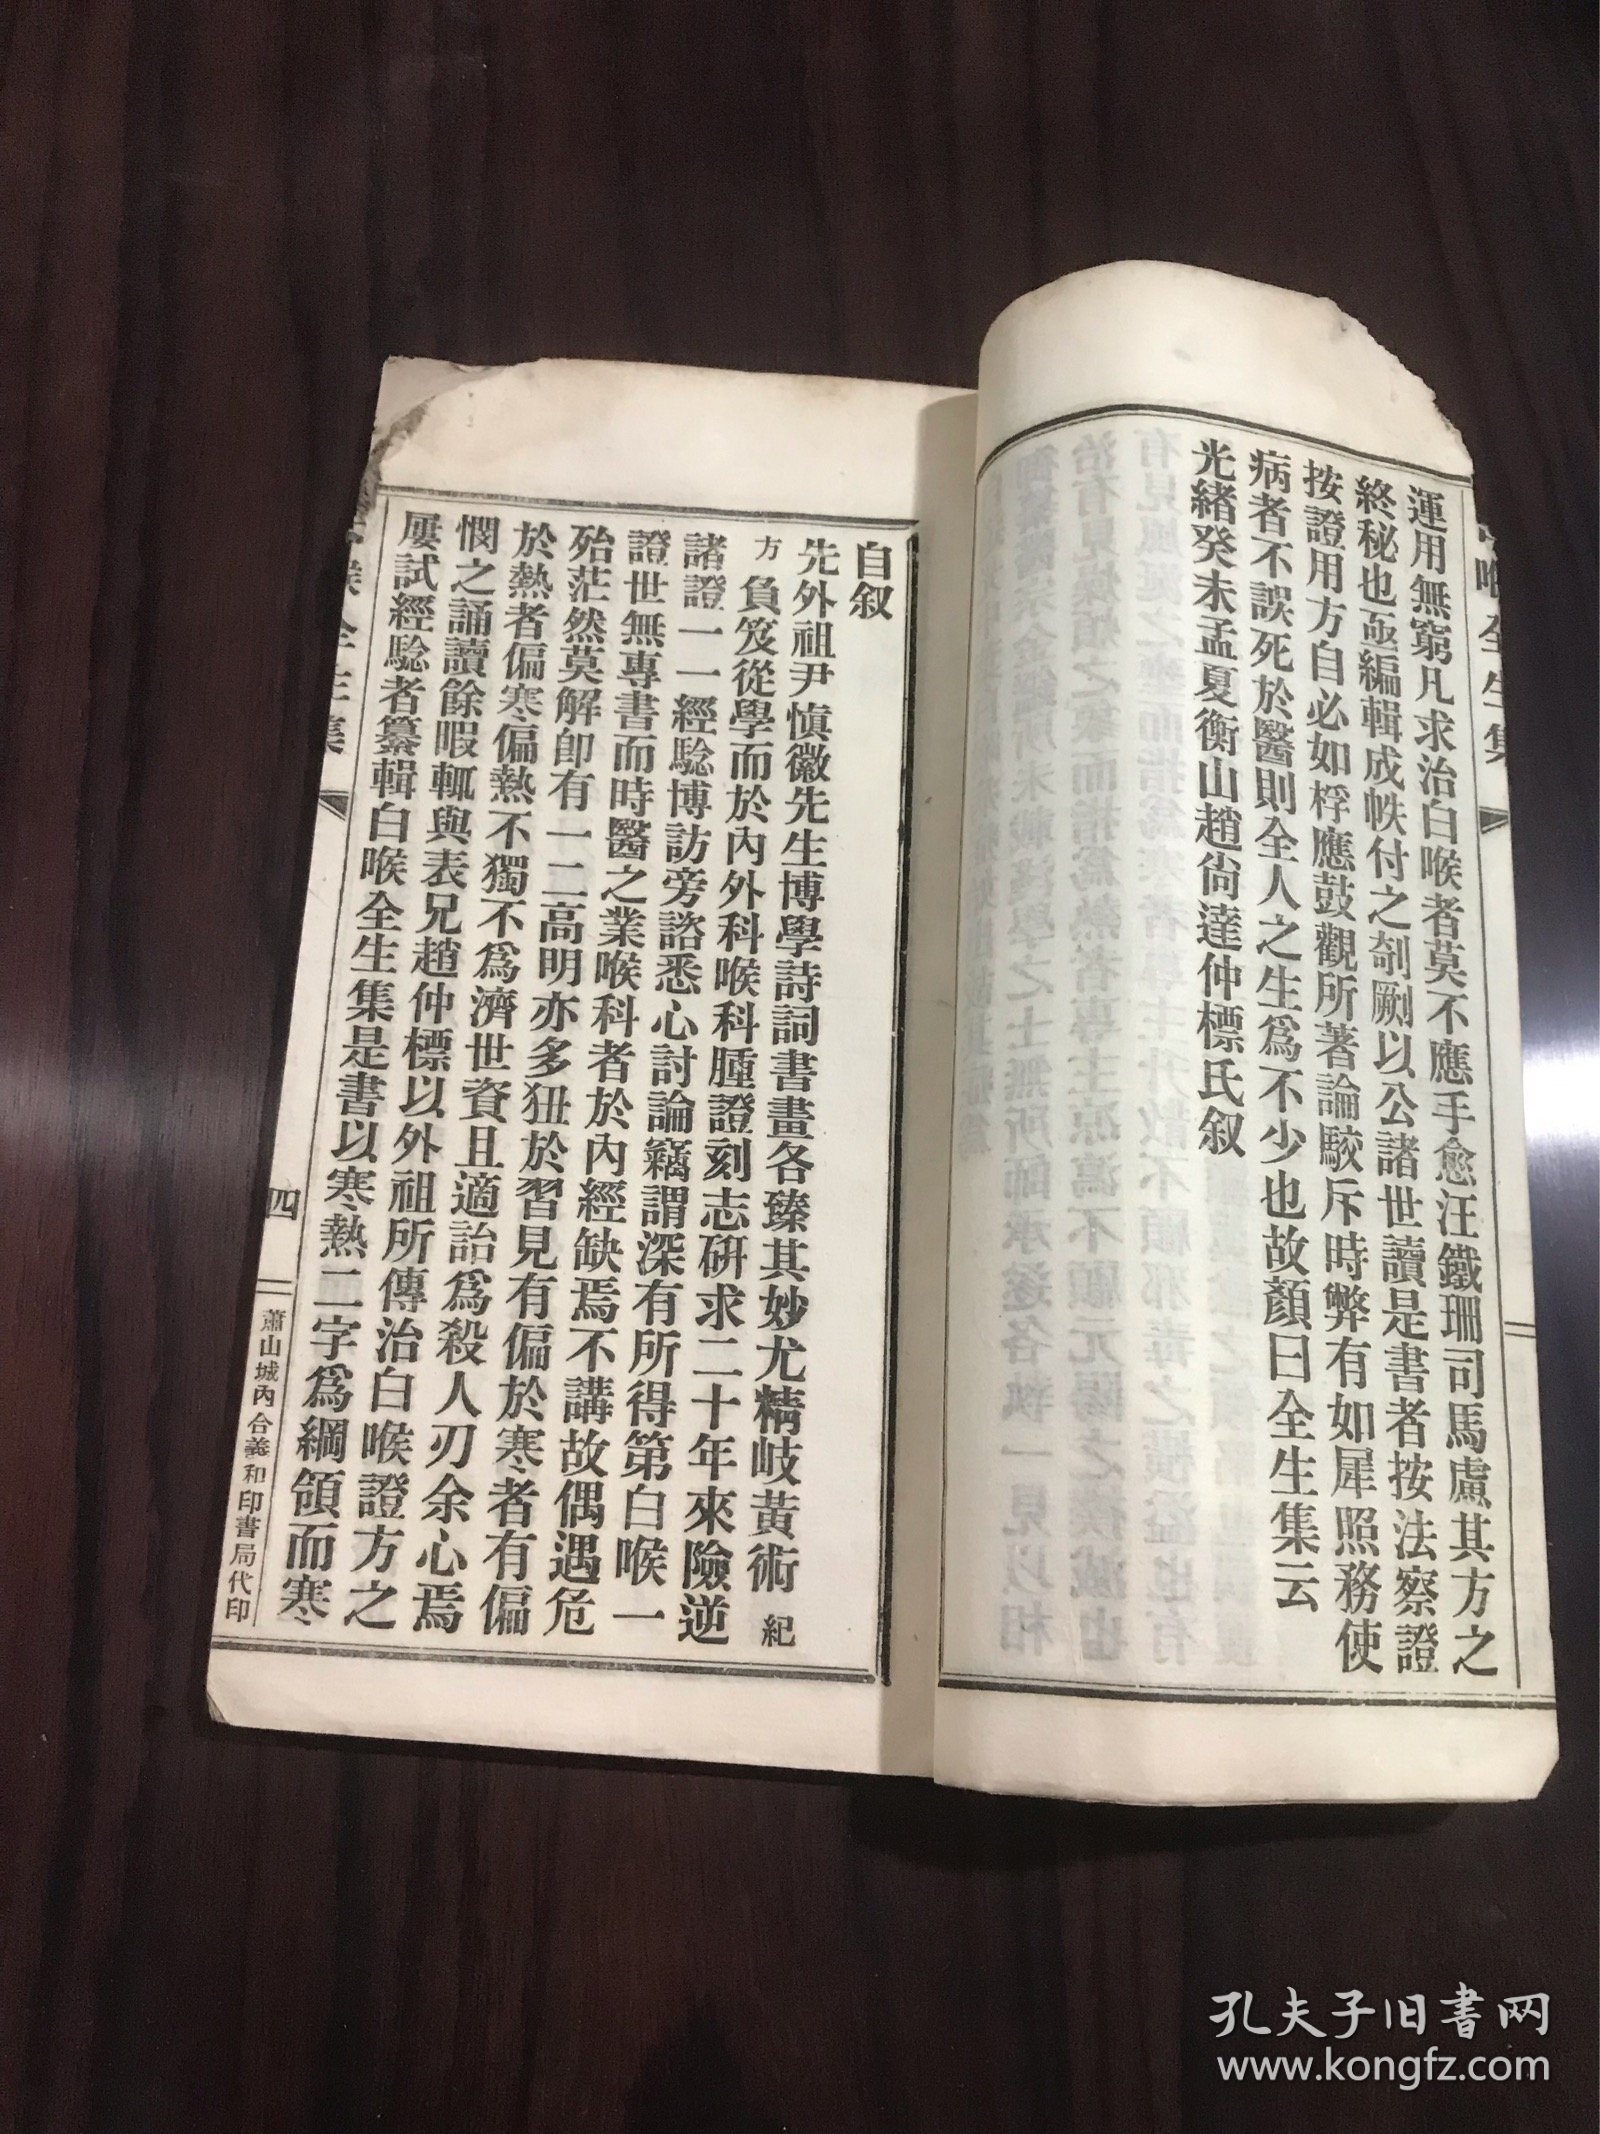 運用無窮凡求治白喉者莫不應手愈汪鐵珊司馬慮其方之
終秘也亟編輯成帙付之剞劂以公諸世讀是書者按法察證
按證用方自必如桴應鼓觀所著論駮斥時弊有如犀照務使
病者不誤死於醫則全人之生爲不少也故顏曰全生集云
光緒癸未孟夏衡山趙尙達仲標氏叙
自叙
先外祖尹慎徽先生博學詩詞書畫各臻其妙尤精岐黃術紀
方負笈從學而於內外科喉科腫證刻志研求二十年來險逆
諸證一一經驗博訪旁諮悉心討論竊謂深有所得第白喉一
證世無專書而時醫之業喉科者於內經缺焉不講故偶遇危
殆茫然莫解卽有一二高明亦多狃於習見有偏於寒者有偏
於熱者偏寒偏熱不獨不爲濟世資且適詒爲殺人刃余心焉
憫之誦讀餘暇輒與表兄趙仲標以外祖所傳治白喉證方之
屢試經驗者纂輯白喉全生集是書以寒熱二字爲綱領而寒
喉全生集
四
蕭山城內合義和印書局代印
孔夫子旧书网
www.kongfz.com